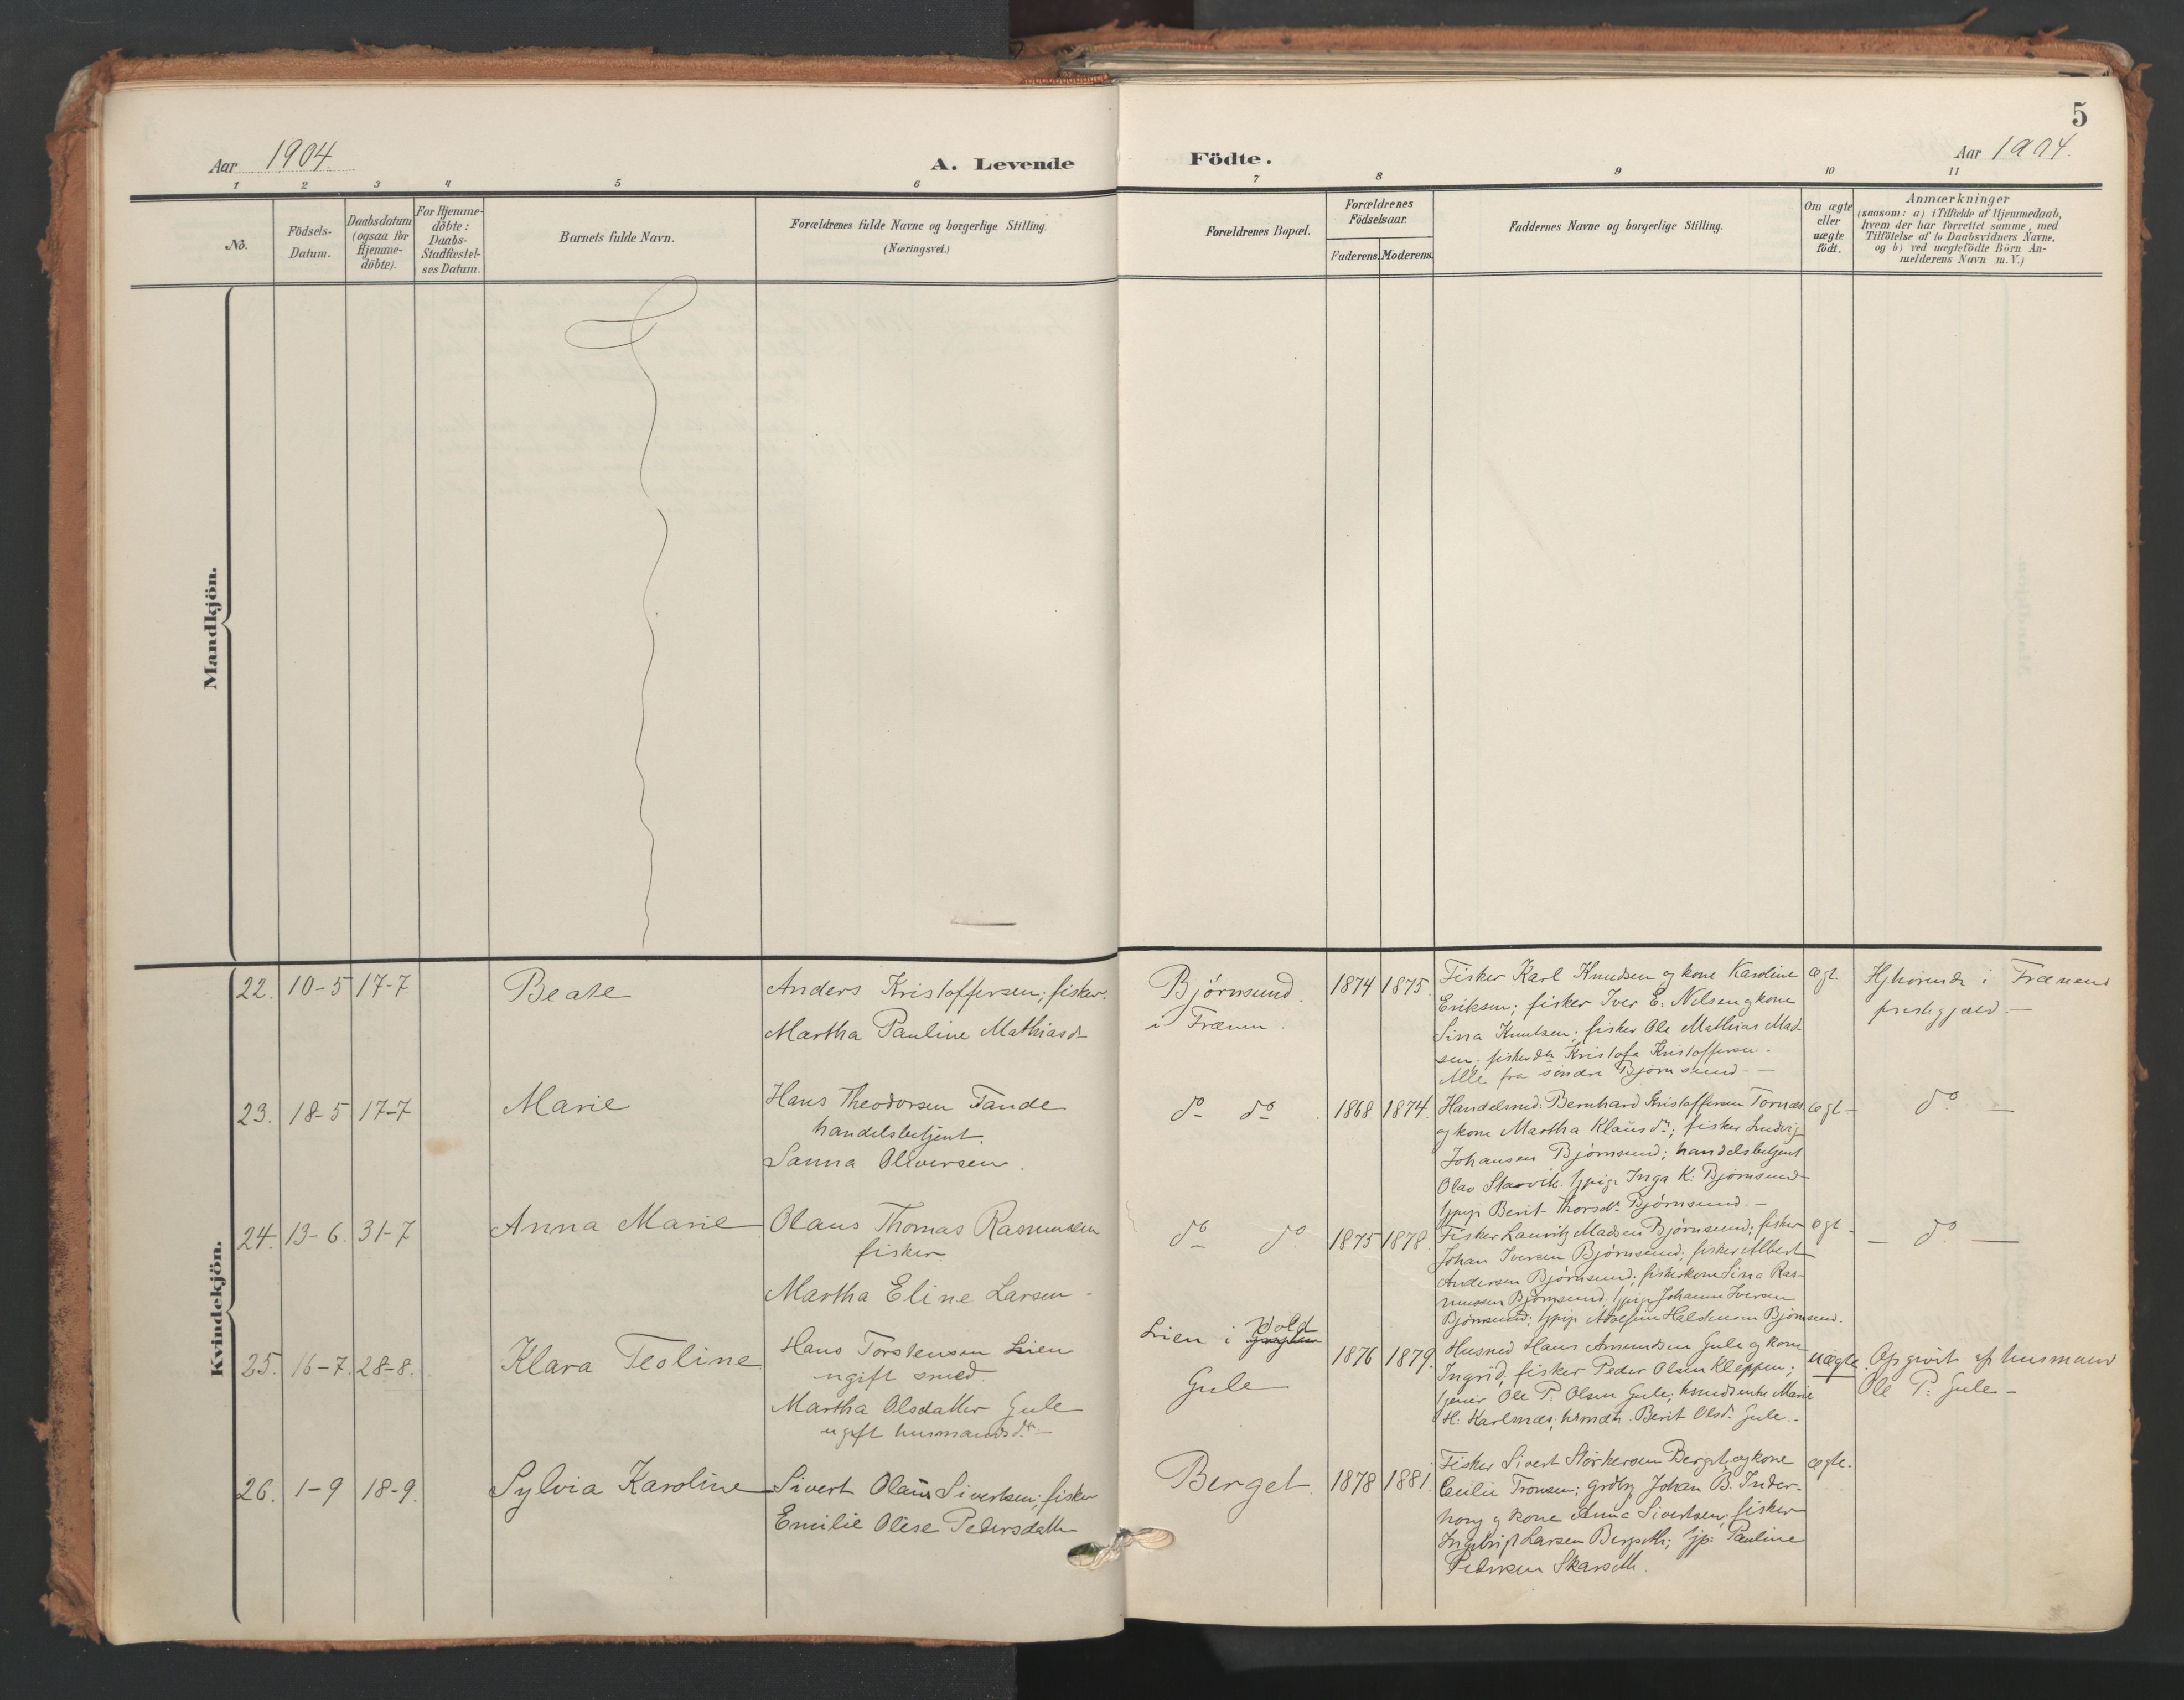 5
Aar 1904.
A. Levende Födte.
Aar 1904.
1 2 3 4 5 6 7 8 9 10 11
No.
Födsels-
Datum.
Daabsdatum
(ogsaa for
Hjemme-
döbte).
For Hjemme-
döbte:
Daabs-
Stadfæstel-
ses Datum.
Barnets fulde Navn.
Forældrenes fulde Navne og borgerlige Stilling.
(Næringsvei.)
Forældrenes Bopæl.
Forældrenes
Födselsaar.
Faderens. Moderens.
Faddernes Navne og borgerlige Stilling.
Om ægte
eller
uægte
födt.
Anmærkninger
(saasom: a) i Tilfælde af Hjemmedaab,
hvem der har forrettet samme, med
Tilföielse af to Daabsvidners Navne,
og b) ved uægtefödte Börn An-
melderens Navn m. V.)
Mandkjön.
Kvindekjön.
22. 10-5 17-7
Beate
Anders Kristoffersen; fisker.
Martha Pauline Mathiasd
Bjørnsund.
i Frænen.
1874 1875.
Fisker Karl Knudsen og kone Karoline
Eriksen; fisker Iver E. Nilsen og kone
Sina Knutsen; fisker Ole Mathias Mad-
sen; fiskerda Kristofa Kristoffersen.
Alle fra søndre Bjørnsund.
ægt.
Hjhørende i Frænens
prestegjæld.
23. 18-5 17-7
Marie
Hans Theodorsen Tande
handelsbetjent.
Sanna Oliversen.
do do
1868 1874.
Handelsmd: Bernhard Kristoffersen Tornæs
og kone Martha Klausdr; fisker Ludvig
Johansen Bjørnsund; handelsbetjent
Olav Starvik. Inga K. Bjørnsund
Berit Thorsdr. Bjørnsund.
ægt
do
24. 13-6. 31-7
Anna Marie
Olaus Thomas Rasmussen
fisker
Martha Eline Larsen
do do
1875 1878.
Fisker Lauritz Madsen Bjørnsund; fisker
Johan Iversen Bjørnsund; fisker Albert
Andersen Bjørnsund; fiskerkone Sina Ras-
mussen Bjørnsund. Johanne Iversen
Bjørnsund; Haldensen Bjørnsund.
ægt
do
25. 16-7. 28-8.
Klara Teoline
Hans Torstensen Lien
ugift smed.
Martha Olsdatter Gule
ugift husmandsdt
Lien i Vold
Gule
1876 1879.
Husmd Hans Amundsen Gule og kone
Ingrid; fisker Peder Olsen Kleppen;
Ole P. Olsen Gule; Marie
H. Karlsnæs; Berit Olsd. Gule.
uægte.
Opgivet af husmand
Ole P. Gule
26. 1-9 18-9.
Sylvia Karoline
Sivert Olaus Sivertsen; fisker
Emilie Olise Pedersdatter
Berget.
1878 1881.
Fisker Sivert Størkersen Berget og kone
Cecilie Tronsen; grdbr Johan B. Inder-
houg og kone Anna Sivertsen; fisker
Ingebrigt Larsen Bergseth; Pauline
Pedersen Skarseth.
ægte.